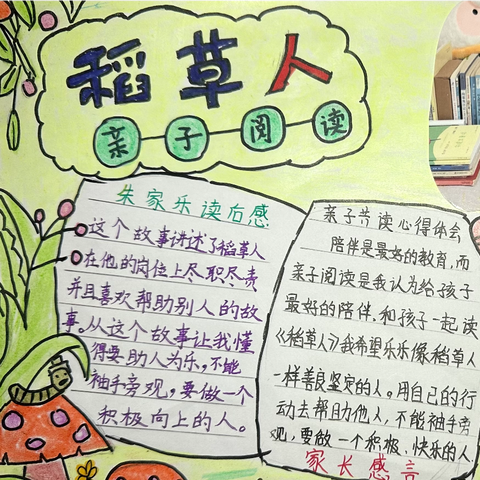 稻草人
亲子阅读
朱家乐读后感
这个故事讲述了稻草人
在他的岗位上尽职尽责
并且喜欢帮助别人的故
事。从这个故事让我懂
得要助人为乐,不能
袖手旁观,要做一个
积极向上的人。
亲子共读心得体会
陪伴是最好的教育,而
亲子阅读是我认为给孩子
最好的陪伴,和孩子一起读
《稻草人》我希望乐乐像稻草人
一样善良坚定的人。用自己的行
动去帮助他人,不能袖手旁
观,要做一个积极、快乐的人
家长感言